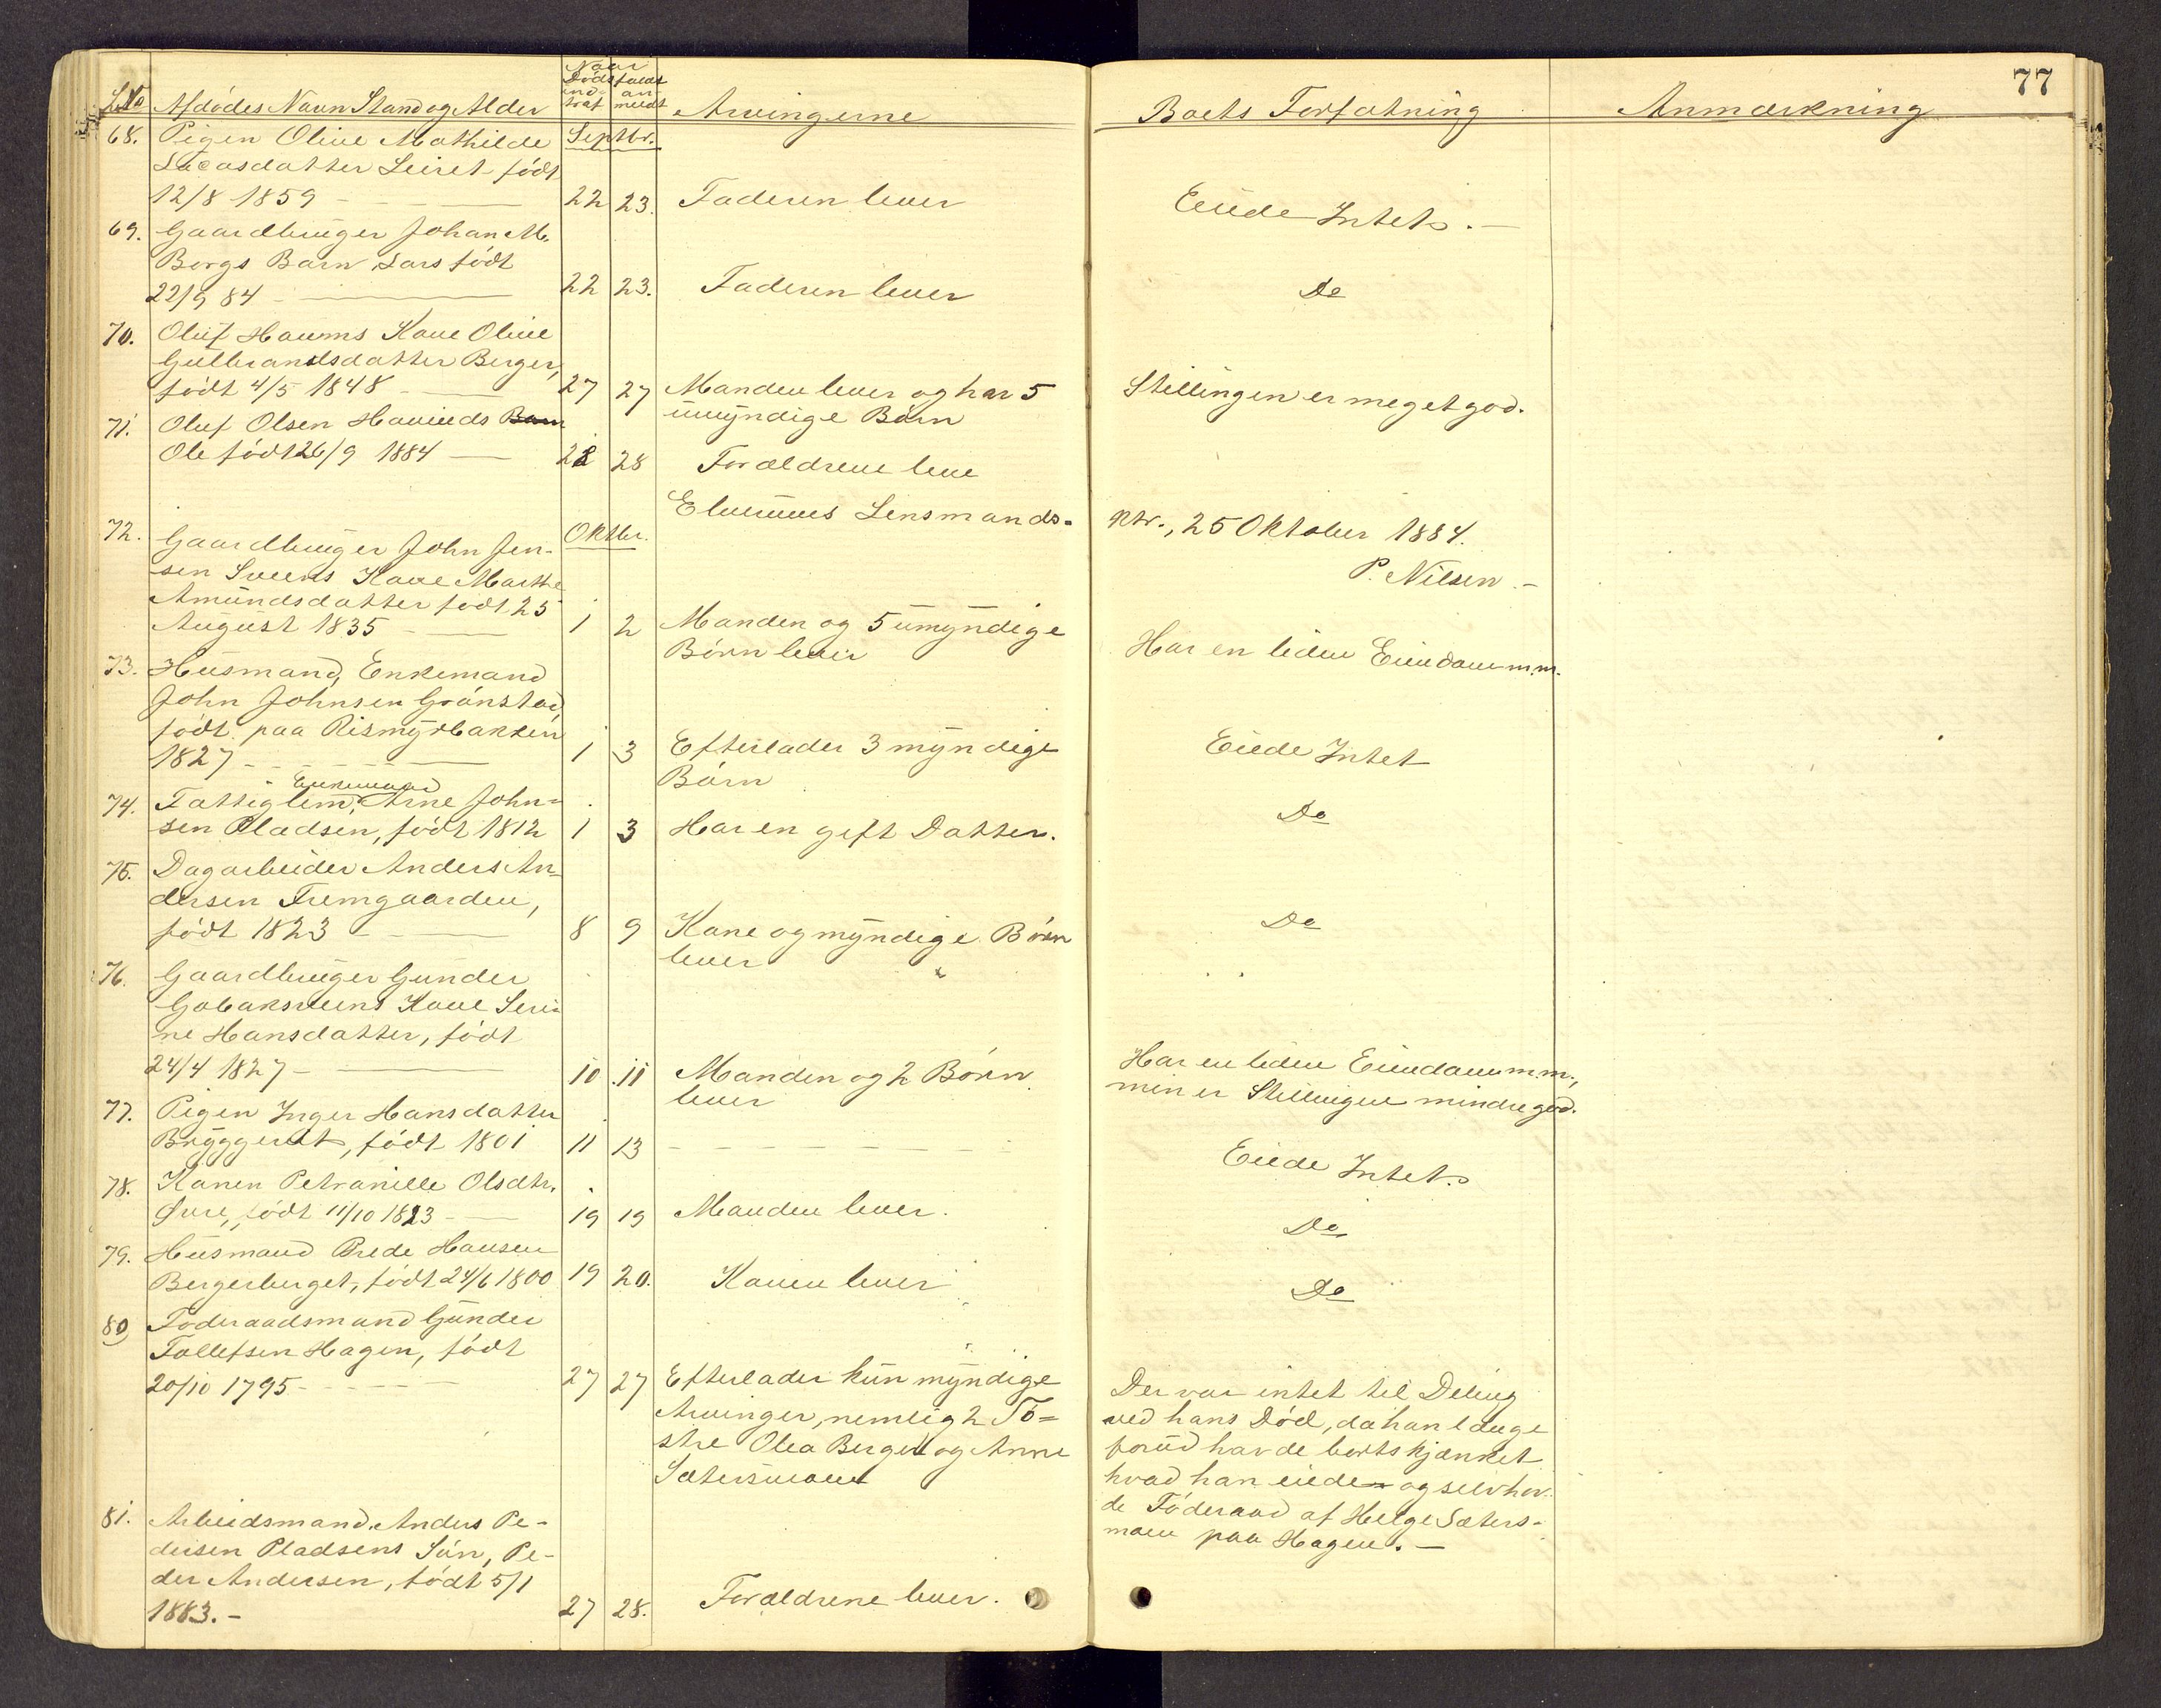 77
LNo Afdødes Navn Stand og Alder Naar Dødsfaldet ind-traf an-meldt Arvingerne Boets Forfatning Anmærkning
68. Pigen Oline Mathilde Septbr.
Lucasdatter Leiret født
12/8 1859 22 23. Faderen lever Eiede Intet.
69. Gaardbruger Johan M.
Borgs Barn Lars født
22/9 84 22 23. Faderen lever Do
70. Oluf Haugms Kone Oline
Gulbrandsdatter Berger,
født 4/5 1848 27 27 Manden lever og har 5 Stillingen er meget god.
umyndige Børn
71. Oluf Olsen Havinds Barn
Ole født 26/9 1884 28 28 Forældrene leve
Elverums Lensmands-
ktr., 25 Oktober 1884.
P. Nilsen.
72. Gaardbruger John Jen- Oktbr.
sen Sveens Kone Marthe
Amundsdatter født 25
August 1835 1 2 Manden og 5 umyndige Har en liden Eiendom m.m.
Børn lever
73. Husmand, Enkemand
John Johnsen Grønstad,
født paa Rismyrbakken
1827 1 3 Efterlader 3 myndige Eiede Intet
Børn
Enkemand
74. Fattiglem, Arne John-
sen Pladsen, født 1812 1 3 Har en gift Datter. Do
75. Dagarbeider Anders An-
dersen Fremgaarden,
født 1823 8 9 Kone og myndige Børn Do
lever
76. Gaardbruger Gunder
Gobaksveens Kone Seri-
ne Hansdatter, født
24/4 1827 10 11 Manden og 2 Børn Har en liden Eiendom m.m.,
lever men er Stillingen mindre god.
77. Pigen Inger Hansdatter
Bryggeret, født 1801 11 13 Eiede Intet
78. Konen Petranille Olsdtr.
Øvre, født 11/10 1823 19 19 Manden lever. Do
79. Husmand Brede Hansen
Bergerberget, født 24/6 1800 19 20. Konen lever Do
80 Føderaadsmand Gunder
Tollefsen Hagen, født
20/10 1795 27 27 Efterlader kun myndige Der var intet til Deling
Arvinger, nemlig 2 Sø- ved hans Død, da han længe
stre Olea Berger og Anne forud havde bortskjænket
Sætersmoen hvad han eiede og selv hav-
de Føderaad af Helge Sæters-
moen paa Hagen.
81. Arbeidsmand Anders Pe-
dersen Pladsens Søn, Pe-
der Andersen, født 5/1
1883. 27 28. Forældrene lever.